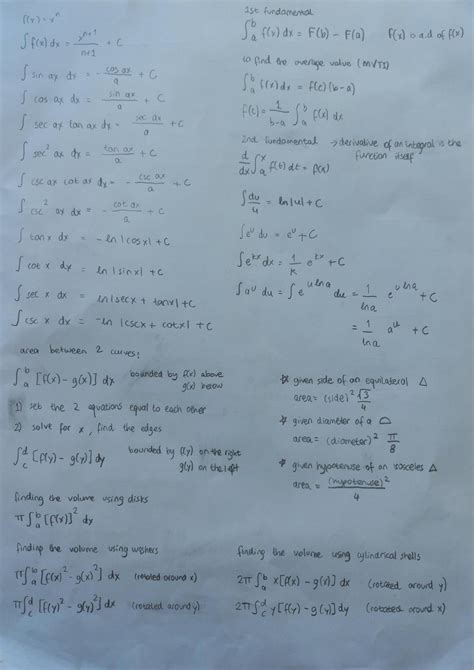 f(x) = x^n
∫ f(x) dx = x^(n+1)/(n+1) + C
∫ sin ax dx = - cos ax / a + C
∫ cos ax dx = sin ax / a + C
∫ sec ax tan ax dx = sec ax / a + C
∫ sec² ax dx = tan ax / a + C
∫ csc ax cot ax dx = - csc ax / a + C
∫ csc² ax dx = - cot ax / a + C
∫ tan x dx = -ln |cos x| + C
∫ cot x dx = ln |sin x| + C
∫ sec x dx = ln |sec x + tan x| + C
∫ csc x dx = -ln |csc x + cot x| + C
1st fundamental
∫_a^b f(x) dx = F(b) - F(a) F(x) is a.d of f(x)
to find the average value (MVTS)
∫_a^b f(x) dx = f(c) (b-a)
f(c) = 1/(b-a) ∫_a^b f(x) dx
2nd fundamental → derivative of an integral is the
function itself
d/dx ∫_a^x f(t) dt = f(x)
∫ du/u = ln |u| + C
∫ e^u du = e^u + C
∫ e^(kx) dx = 1/k e^(kx) + C
∫ a^u du = ∫ e^(u ln a) du = 1/ln a e^(u ln a) + C
= 1/ln a a^u + C
area between 2 curves:
∫_a^b [f(x) - g(x)] dx bounded by f(x) above
g(x) below
1) set the 2 equations equal to each other
2) solve for x, find the edges
∫_c^d [f(y) - g(y)] dy bounded by f(y) on the right
g(y) on the left
☆ given side of an equilateral △
area = (side)² √3/4
☆ given diameter of a ⌓
area = (diameter)² π/8
☆ given hypotenuse of an isosceles △
area = (hypotenuse)²/4
finding the volume using disks
π∫_a^b [f(x)]² dx
finding the volume using washers
π∫_a^b [f(x)² - g(x)²] dx (rotated around x)
π∫_c^d [f(y)² - g(y)²] dy (rotated around y)
finding the volume using cylindrical shells
2π∫_a^b x[f(x) - g(x)] dx (rotated around y)
2π∫_c^d y[f(y) - g(y)] dy (rotated around x)